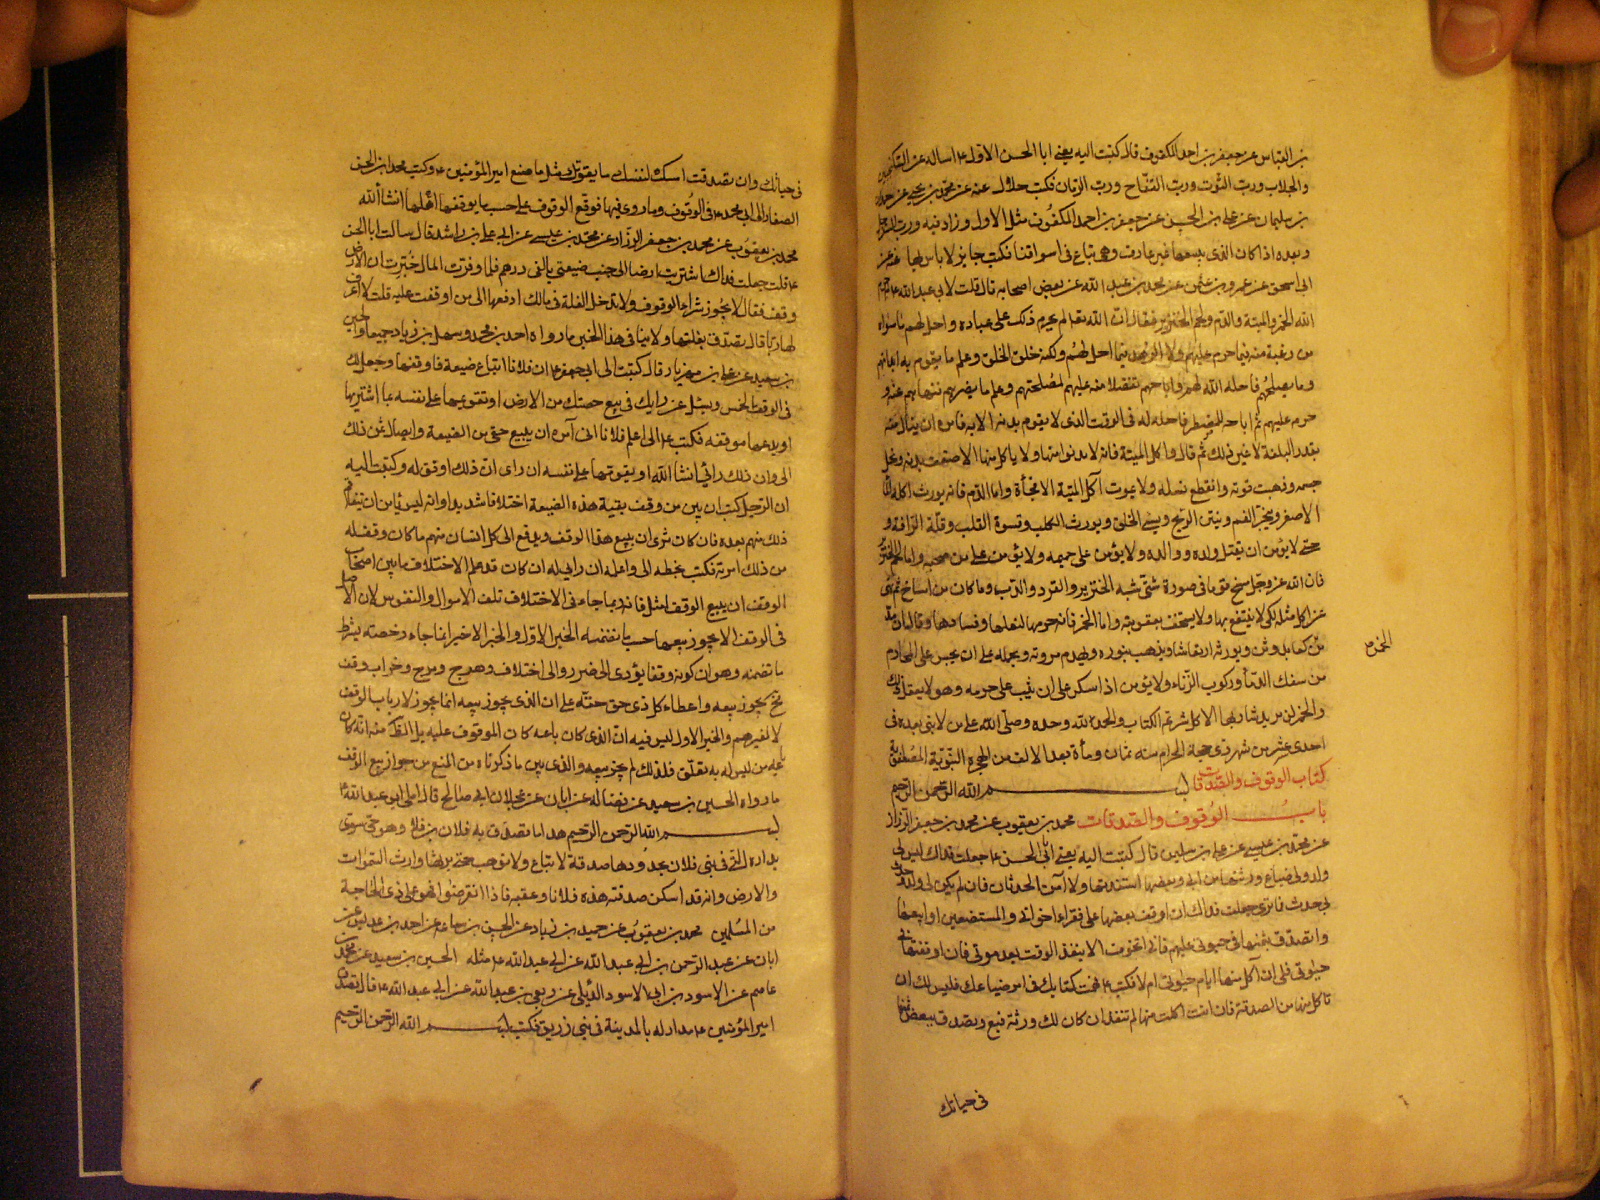 بن العباس عن جعفر بن احمد المكفوف قال كتبت اليه يعني ابا الحسن الاول ع اساله عن السكنجبين
والجلاب ورب التوت ورب التفاح ورب الرمان فكتب حلال عنه عن محمد بن يحيى عن حمدان
بن سليمان عن علي بن الحسن عن جعفر بن احمد المكفوف مثل الاول وزاد فيه ورب السفرجل
وبعده اذا كان الذي يبيعها غير عارف وهي تباع في اسواقنا فكتب جايز لا باس بها عنه عن
ابي اسحق عن عمرو بن عثمن عن محمد بن عبد الله عن بعض اصحابه قال قلت لابي عبد الله ع لم حرم
الله الخمر والميتة والدم ولحم الخنزير فقال ان الله تعالى لم يحرم ذلك على عباده واحل لهم ما سواه
من رغبة منه فيما حرم عليهم ولا لزهد فيما احل لهم ولكنه خلق الخلق وعلم ما يقوم به ابدانهم
وما يصلحهم فاحله الله لهم واباحهم تفضلا منه عليهم لمصلحتهم وعلم ما يضرهم فنهاهم عنه و
حرم عليهم ثم اباحه للمضطر فاحله له في الوقت الذي لا يقوم بدنه الا به فامره ان ينال منه
بقدر البلغة لا غير ذلك ثم قال واكل الميتة فانه لا يدنو منها ولا ياكل منها الا ضعف بدنه ونحل
جسمه وذهبت قوته وانقطع نسله ولا يموت آكل الميتة الا فجأة واما الدم فانه يورث اكله الماء
الاصفر ويبخر الفم وينتن الريح ويسيء الخلق ويورث الكلب وقسوة القلب وقلة الرافة و
حتى لا يؤمن ان يقتل ولده ووالده ولا يؤمن على حميمه ولا يؤمن على من صحبه واما لحم الخنزير
فان الله عز وجل مسخ قوما في صورة شتى شبه الخنزير والقرد والدب وما كان من امساخ ثم نهى
عن اكل مثله لكي لا ينتفع بها ولا يستخف بعقوبته واما الخمر فانه حرمها لفعلها وفسادها وقال ان مدمن
الخمر
كعابد وثن ويورثه ارتعاشا ويذهب بنوره ويهدم مروته ويحمله على ان يجسر على المحارم
من سفك الدماء وركوب الزناء ولا يؤمن اذا سكر على ان يثب على حرمه وهو لا يعقل ذلك
والخمر لن يزيد شاربها الا كل شر تم الكتاب والحمد لله وحده وصلى الله على من لا نبي بعده في
احدى عشر من شهر ذي حجة الحرام سنه ثمان ومأة بعد الالف من الهجرة النبوية المصطفوية
كتاب الوقوف والصدقات بسم الله الرحمن الرحيم
باب الوقوف والصدقات محمد بن يعقوب عن محمد بن جعفر الرزاز
عن محمد بن عيسى عن علي بن سليمن قال كتبت اليه يعني ابي الحسن ع جعلت فداك ليس لي
ولد ولي ضياع ورثتها من ابي وبعضها استفدتها ولا آمن الحدثان فان لم يكن لي ولد وحدث
لي حدث فما ترى جعلت فداك ان اوقف بعضها على فقراء اخواني والمستضعفين او ابيعها
واتصدق بثمنها في حيوتي عليهم فاني اتخوف الا ينفذ الوقف بعد موتي فان اوقفتها في
حيوتي فلي ان آكل منها ايام حيوتي ام لا فكتب ع فهمت كتابك في امر ضياعك فليس لك ان
تاكل منها من الصدقة فان انت اكلت منها لم تنفذ ان كان لك ورثة فبع وتصدق ببعض ثمنها
في حياتك
في حياتك وان تصدقت امسك لنفسك ما يقوتك مثل ما صنع امير المؤمنين ع وكتب محمد بن الحسن
الصفار الى ابي محمد ع في الوقوف وما روي فيها فوقع الوقوف على حسب ما يوقفها اهلها انشاء الله
محمد بن يعقوب عن محمد بن جعفر الرزاز عن محمد بن عيسى عن ابي علي بن راشد قال سالت ابا الحسن
ع قلت جعلت فداك اشتريت ارضا الى جنب ضيعتي بالفي درهم فلما وفرت المال خبرت ان الارض
وقف فقال لا يجوز شراء الوقوف ولا تدخل الغلة في مالك ادفعها الى من اوقفت عليه قلت لا اعرف
لها ربا قال تصدق بغلتها ولا ينافي هذا الخبر ما رواه احمد بن محمد وسهل بن زياد جميعا والحسين
بن سعيد عن علي بن مهزيار قال كتبت الى ابي جعفر ع ان فلانا ابتاع ضيعة فاوقفها وجعل لك
في الوقف الخمس ويسئل عن رايك في بيع حصتك من الارض او تقويمها على نفسه بما اشتريها
او يدعها موقفه فكتب ع الي اعلم فلانا اني آمره ان يبيع حقي من الضيعة وايصال ثمن ذلك
الي وان ذلك رائي انشاء الله او يقومها على نفسه ان راى ان ذلك اوفق له وكتبت اليه
ان الرجل كتب ان بين من وقف بقية هذه الضيعة اختلافا شديدا وانه ليس يامن ان يتفاقم
ذلك منهم بعده فان كان ترى ان يبيع هذا الوقف ويدفع الى كل انسان منهم ما كان وقف له
من ذلك امرته فكتب بخطه الي واعلمه ان رايي له ان كان قد علم الاختلاف ما بين اصحاب
الوقف ان يبيع الوقف امثل فانه ربما جاء في الاختلاف تلف الاموال والنفوس لان الاصل
في الوقف الا يجوز بيعها حسب ما تضمنه الخبر الاول والخبر الاخير انما جاء رخصته بشرط
ما تضمنه وهو ان كونه وقفا يؤدي الى ضرر والى اختلاف وهرج ومرج وخراب وقف
فح يجوز بيعه واعطاء كل ذي حق حقه على ان الذي يجوز بيعه انما يجوز لارباب الوقف
لا لغيرهم والخبر الاول ليس فيه ان الذي كان باعه كان الموقوف عليه بل الظ منه انه كان
باعه من ليس له به تعلق فلذلك لم يجز بيعه والذي يبين ما ذكرناه من المنع من جواز بيع الوقف
ما رواه الحسين بن سعيد عن فضاله عن ابان عن عجلان ابي صالح قال املى ابو عبد الله ع
بسم الله الرحمن الرحيم هذا ما تصدق به فلان بن فلان وهو حي سوي
بداره التي في بني فلان بحدودها صدقة لا تباع ولا توهب حتى يرثها وارث السموات
والارض وانه قد اسكن صدقته هذه فلانا وعقبه فاذا انقرضوا فهو على ذي الحاجة
من المسلمين محمد بن يعقوب عن حميد بن زياد عن الحسن بن سماعه عن احمد بن عديس عن
ابان عن عبد الرحمن بن ابي عبد الله عن ابي عبد الله ع مثله الحسين بن سعيد عن محمد بن
عاصم عن الاسود بن ابي الاسود الدئلي عن ربعي بن عبد الله عن ابي عبد الله ع قال تصدق
امير المؤمنين ع بدار له بالمدينة في بني زريق فكتب بسم الله الرحمن الرحيم